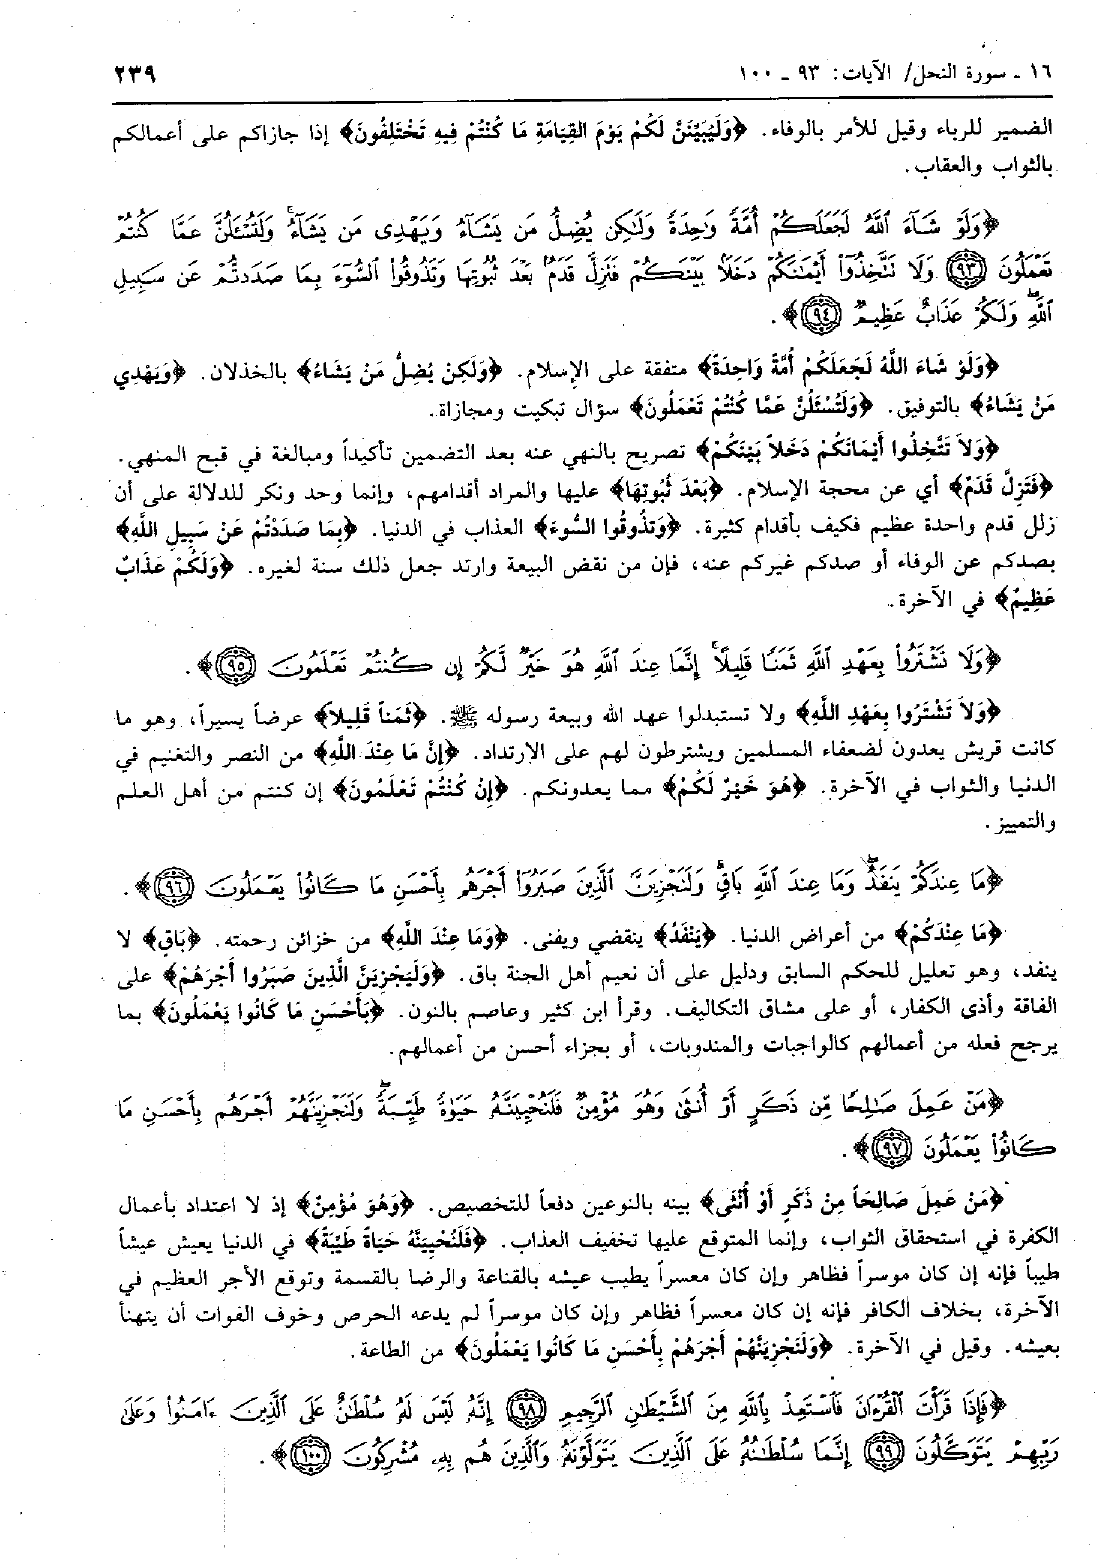 ١٦ ـ سورة النحل/ الآيات: ٩٣ ـ ١٠٠
٢٣٩
الضمير للرباء وقيل للأمر بالوفاء. ﴿وَلَيُبَيِّنَنَّ لَكُمْ يَوْمَ القِيَامَةِ مَا كُنْتُمْ فِيهِ تَخْتَلِفُونَ﴾ إذا جازاكم على أعمالكم
بالثواب والعقاب.
﴿وَلَوْ شَآءَ ٱللَّهُ لَجَعَلَكُمْ أُمَّةً وَٰحِدَةً وَلَٰكِن يُضِلُّ مَن يَشَآءُ وَيَهْدِى مَن يَشَآءُ ۚ وَلَتُسْـَٔلُنَّ عَمَّا كُنتُمْ
تَعْمَلُونَ ﴿٩٣﴾ وَلَا تَتَّخِذُوٓا۟ أَيْمَٰنَكُمْ دَخَلًۢا بَيْنَكُمْ فَتَزِلَّ قَدَمٌۢ بَعْدَ ثُبُوتِهَا وَتَذُوقُوا۟ ٱلسُّوٓءَ بِمَا صَدَدتُّمْ عَن سَبِيلِ
ٱللَّهِ ۖ وَلَكُمْ عَذَابٌ عَظِيمٌ ﴿٩٤﴾﴾.
﴿وَلَوْ شَاءَ اللَّهُ لَجَعَلَكُمْ أُمَّةً وَاحِدَةً﴾ متفقة على الإسلام. ﴿وَلَكِنْ يُضِلُّ مَنْ يَشَاءُ﴾ بالخذلان. ﴿وَيَهْدِي
مَنْ يَشَاءُ﴾ بالتوفيق. ﴿وَلَتُسْئَلُنَّ عَمَّا كُنْتُمْ تَعْمَلُونَ﴾ سؤال تبكيت ومجازاة.
﴿وَلاَ تَتَّخِذُوا أَيْمَانَكُمْ دَخَلاً بَيْنَكُمْ﴾ تصريح بالنهي عنه بعد التضمين تأكيداً ومبالغة في قبح المنهي.
﴿فَتَزِلَّ قَدَمٌ﴾ أي عن محجة الإسلام. ﴿بَعْدَ ثُبُوتِهَا﴾ عليها والمراد أقدامهم، وإنما وحد ونكر للدلالة على أن
زلل قدم واحدة عظيم فكيف بأقدام كثيرة. ﴿وَتَذُوقُوا السُّوءَ﴾ العذاب في الدنيا. ﴿بِمَا صَدَدْتُمْ عَنْ سَبِيلِ اللَّهِ﴾
بصدكم عن الوفاء أو صدكم غيركم عنه، فإن من نقض البيعة وارتد جعل ذلك سنة لغيره. ﴿وَلَكُمْ عَذَابٌ
عَظِيمٌ﴾ في الآخرة.
﴿وَلَا تَشْتَرُوا۟ بِعَهْدِ ٱللَّهِ ثَمَنًا قَلِيلًا ۚ إِنَّمَا عِندَ ٱللَّهِ هُوَ خَيْرٌ لَّكُمْ إِن كُنتُمْ تَعْلَمُونَ ﴿٩٥﴾﴾.
﴿وَلاَ تَشْتَرُوا بِعَهْدِ اللَّهِ﴾ ولا تستبدلوا عهد الله وبيعة رسوله ﷺ. ﴿ثَمَناً قَلِيلاً﴾ عرضاً يسيراً، وهو ما
كانت قريش يعدون لضعفاء المسلمين ويشترطون لهم على الارتداد. ﴿إِنَّ مَا عِنْدَ اللَّهِ﴾ من النصر والتغنيم في
الدنيا والثواب في الآخرة. ﴿هُوَ خَيْرٌ لَكُمْ﴾ مما يعدونكم. ﴿إِنْ كُنْتُمْ تَعْلَمُونَ﴾ إن كنتم من أهل العلم
والتمييز.
﴿مَا عِندَكُمْ يَنفَدُ ۖ وَمَا عِندَ ٱللَّهِ بَاقٍ ۗ وَلَنَجْزِيَنَّ ٱلَّذِينَ صَبَرُوٓا۟ أَجْرَهُم بِأَحْسَنِ مَا كَانُوا۟ يَعْمَلُونَ ﴿٩٦﴾﴾.
﴿مَا عِنْدَكُمْ﴾ من أعراض الدنيا. ﴿يَنْفَدُ﴾ ينقضي ويفنى. ﴿وَمَا عِنْدَ اللَّهِ﴾ من خزائن رحمته. ﴿بَاقٍ﴾ لا
ينفد، وهو تعليل للحكم السابق ودليل على أن نعيم أهل الجنة باق. ﴿وَلَيَجْزِيَنَّ الَّذِينَ صَبَرُوا أَجْرَهُمْ﴾ على
الفاقة وأذى الكفار، أو على مشاق التكاليف. وقرأ ابن كثير وعاصم بالنون. ﴿بِأَحْسَنِ مَا كَانُوا يَعْمَلُونَ﴾ بما
يرجح فعله من أعمالهم كالواجبات والمندوبات، أو بجزاء أحسن من أعمالهم.
﴿مَنْ عَمِلَ صَٰلِحًا مِّن ذَكَرٍ أَوْ أُنثَىٰ وَهُوَ مُؤْمِنٌ فَلَنُحْيِيَنَّهُۥ حَيَوٰةً طَيِّبَةً ۖ وَلَنَجْزِيَنَّهُمْ أَجْرَهُم بِأَحْسَنِ مَا
كَانُوا۟ يَعْمَلُونَ ﴿٩٧﴾﴾.
﴿مَنْ عَمِلَ صَالِحَاً مِنْ ذَكَرٍ أَوْ أُنْثَى﴾ بينه بالنوعين دفعاً للتخصيص. ﴿وَهُوَ مُؤْمِنٌ﴾ إذ لا اعتداد بأعمال
الكفرة في استحقاق الثواب، وإنما المتوقع عليها تخفيف العذاب. ﴿فَلَنُحْيِيَنَّهُ حَيَاةً طَيِّبَةً﴾ في الدنيا يعيش عيشاً
طيباً فإنه إن كان موسراً فظاهر وإن كان معسراً يطيب عيشه بالقناعة والرضا بالقسمة وتوقع الأجر العظيم في
الآخرة، بخلاف الكافر فإنه إن كان معسراً فظاهر وإن كان موسراً لم يدعه الحرص وخوف الفوات أن يتهنأ
بعيشه. وقيل في الآخرة. ﴿وَلَنَجْزِيَنَّهُمْ أَجْرَهُمْ بِأَحْسَنِ مَا كَانُوا يَعْمَلُونَ﴾ من الطاعة.
﴿فَإِذَا قَرَأْتَ ٱلْقُرْءَانَ فَٱسْتَعِذْ بِٱللَّهِ مِنَ ٱلشَّيْطَٰنِ ٱلرَّجِيمِ ﴿٩٨﴾ إِنَّهُۥ لَيْسَ لَهُۥ سُلْطَٰنٌ عَلَى ٱلَّذِينَ ءَامَنُوا۟ وَعَلَىٰ
رَبِّهِمْ يَتَوَكَّلُونَ ﴿٩٩﴾ إِنَّمَا سُلْطَٰنُهُۥ عَلَى ٱلَّذِينَ يَتَوَلَّوْنَهُۥ وَٱلَّذِينَ هُم بِهِۦ مُشْرِكُونَ ﴿١٠٠﴾﴾.